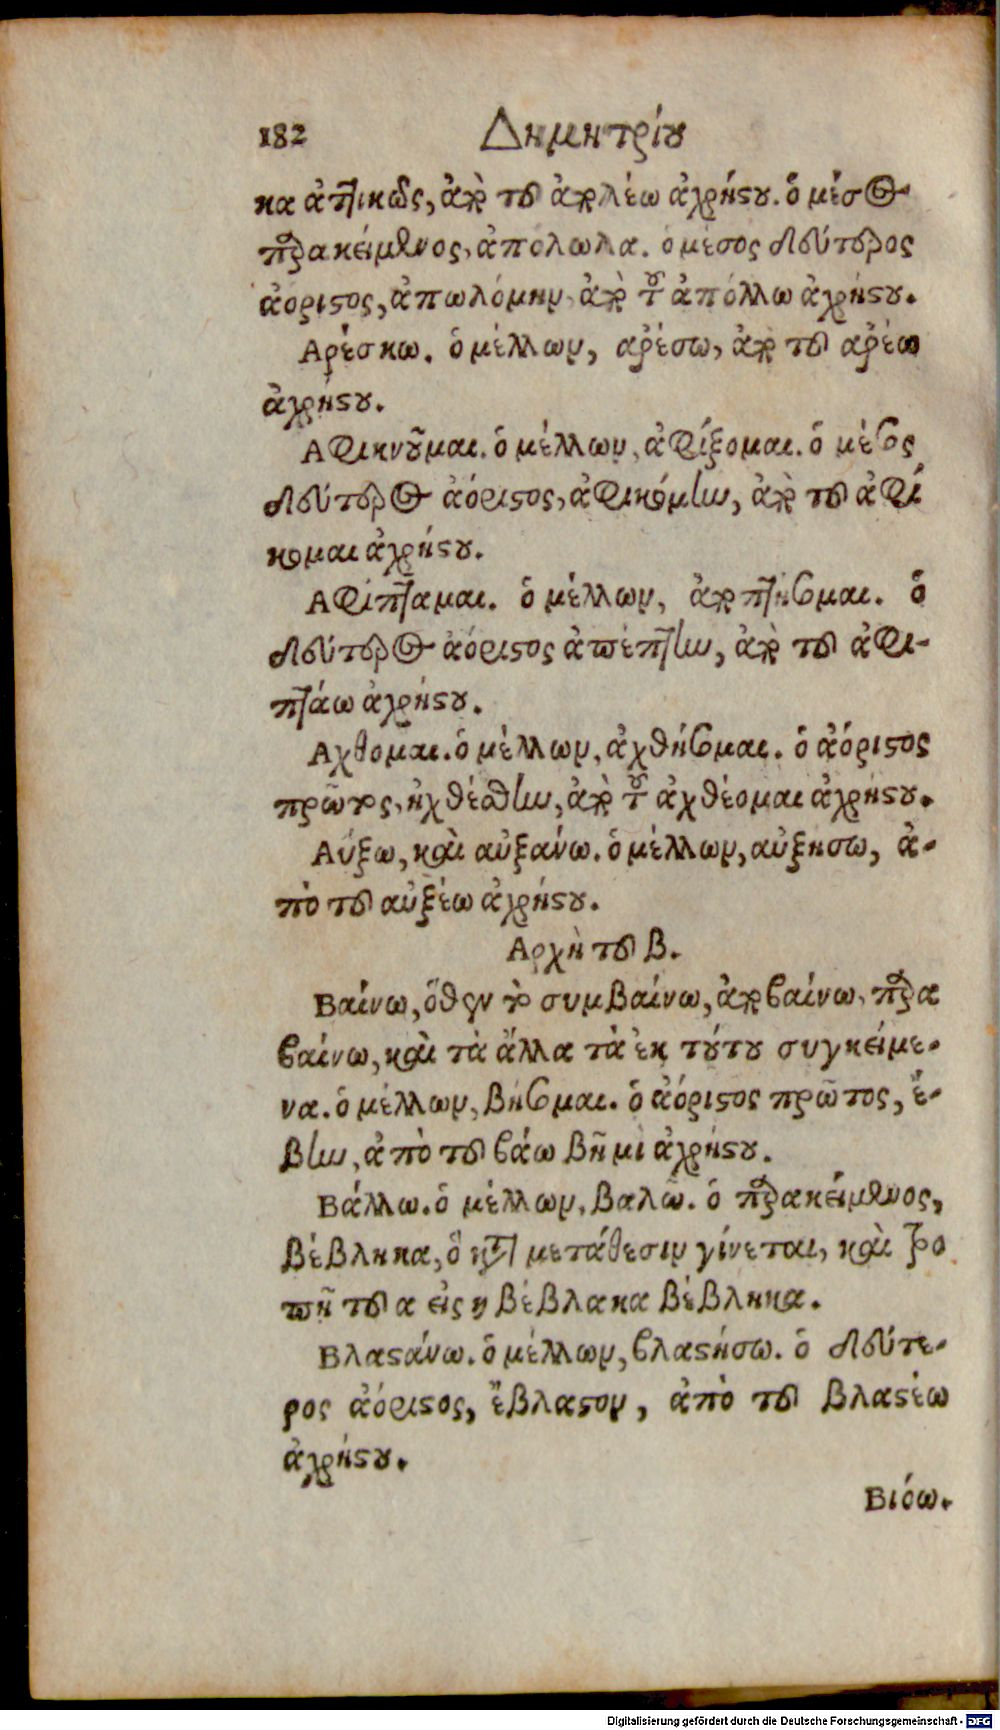 182 Δημητρίου
κα ἀττικῶς, ἀπὸ τοῦ ἀπολέω ἀχρήστου. ὁ μέσος
παρακείμενος, ἀπόλωλα. ὁ μέσος δεύτερος
ἀόριστος, ἀπωλόμην, ἀπὸ τοῦ ἀπόλλω ἀχρήστου.
Αρέσκω. ὁ μέλλων, αρέσω, ἀπὸ τοῦ αρέω
ἀχρήστου.
Αφικνοῦμαι. ὁ μέλλων, ἀφίξομαι. ὁ μέσος
δεύτερος ἀόριστος, ἀφικόμην, ἀπὸ τοῦ ἀφί
κομαι ἀχρήστου.
Αφίπταμαι. ὁ μέλλων, ἀποπτήσομαι. ὁ
δεύτερος ἀόριστος ἀπέπτην, ἀπὸ τοῦ ἀφι-
πτάω ἀχρήστου.
Αχθομαι. ὁ μέλλων, ἀχθήσομαι. ὁ ἀόριστος
πρῶτος, ἠχθέσθην, ἀπὸ τοῦ ἀχθέομαι ἀχρήστου.
Αύξω, καὶ αὐξάνω. ὁ μέλλων, αὐξησω, ἀ-
πὸ τοῦ αὐξέω ἀχρήστου.
Αρχὴ τοῦ β.
Βαίνω, ὅθεν τὸ συμβαίνω, ἀποβαίνω, παρα
βαίνω, καὶ τὰ ἄλλα τὰ ἐκ τούτου συγκείμε-
να. ὁ μέλλων, βήσομαι. ὁ ἀόριστος πρῶτος, ἔ-
βην, ἀπὸ τοῦ βάω βῆμι ἀχρήστου.
Βάλλω. ὁ μέλλων, βαλῶ. ὁ παρακείμενος,
βέβληκα, ὃ κατὰ μετάθεσιν γίνεται, καὶ τρο
πῇ τοῦ α εἰς η βέβλακα βέβληκα.
Βλαστάνω. ὁ μέλλων, βλαστήσω. ὁ δεύτε-
ρος ἀόριστος, ἔβλαστον, ἀπὸ τοῦ βλαστέω
ἀχρήστου.
Βιόω.
Digitalisierung gefördert durch die Deutsche Forschungsgemeinschaft - DFG